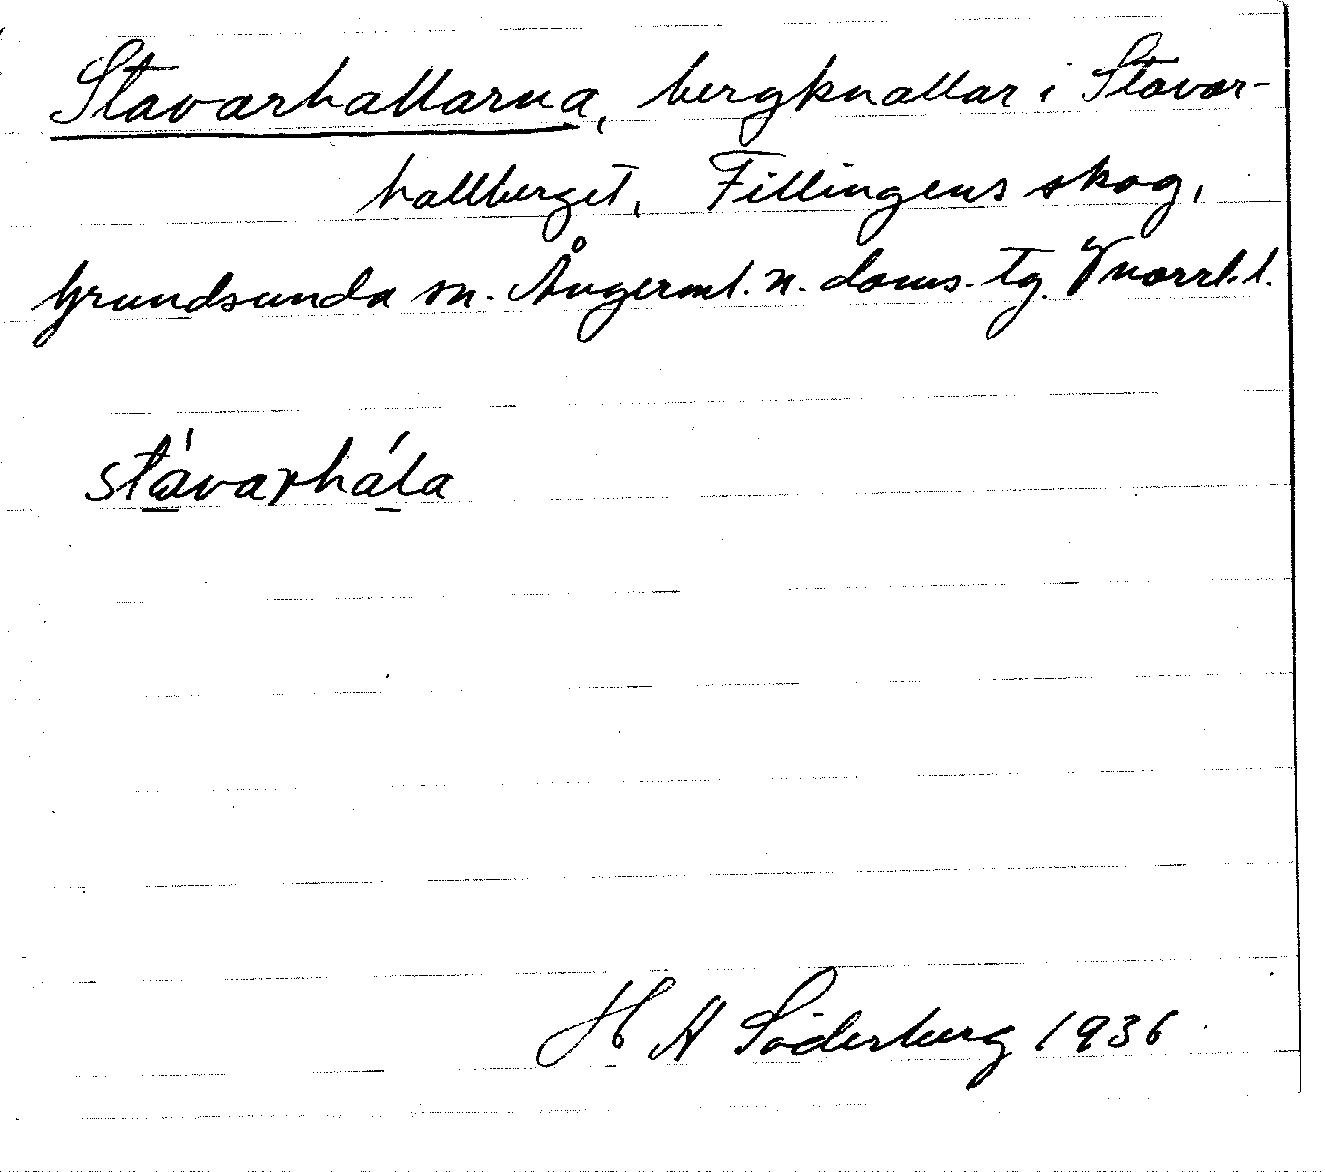 Stavarhallarna, bergknallar i Stavar-
hallberget, Fillingens skog,
Grundsunda sn. Ångerml. n. doms. tg. Vnorrl. l.
stávarhála
H A Söderberg 1936